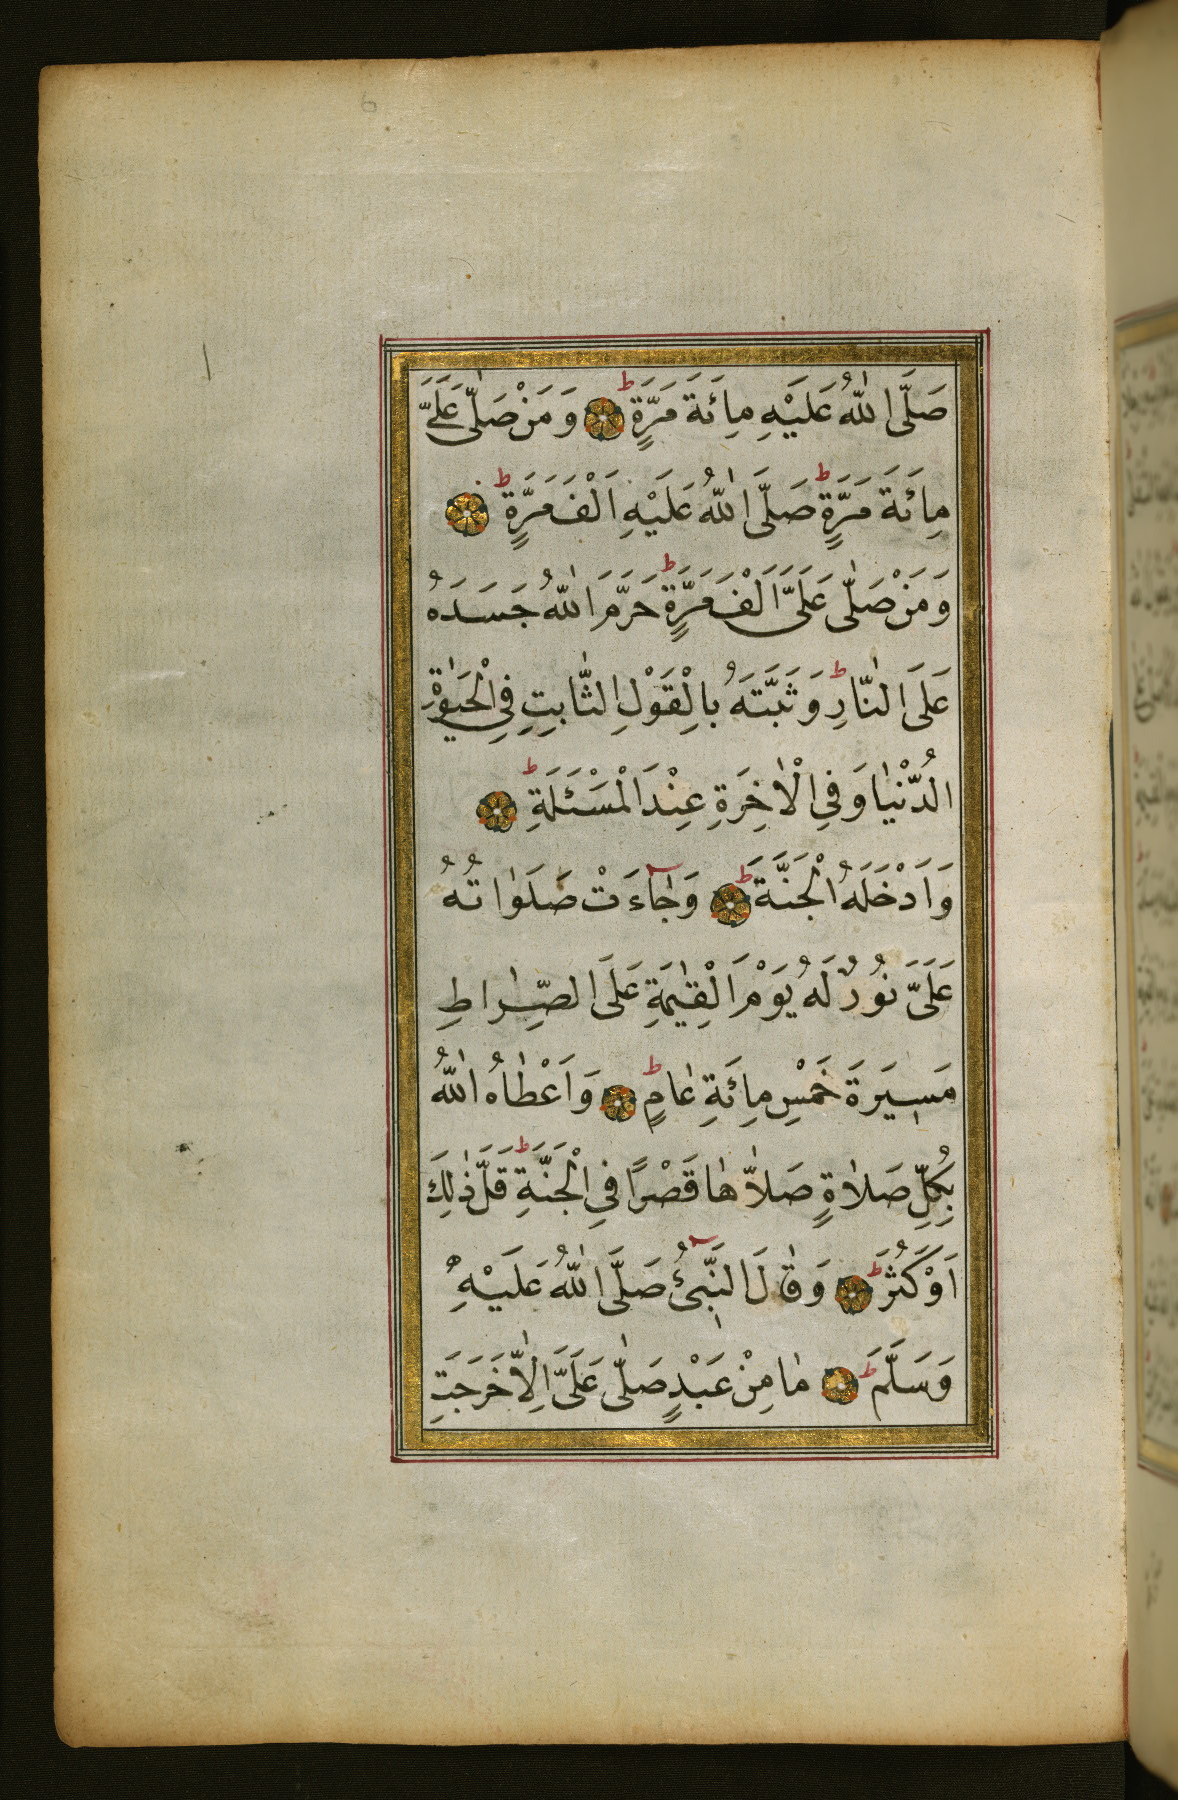 صَلَّى اللهُ عَلَيْهِ مِائَةَ مَرَّةٍ وَمَنْ صَلّٰى عَلَيَّ
مِائَةَ مَرَّةٍ صَلَّى اللهُ عَلَيْهِ اَلْفَ مَرَّةٍ
وَمَنْ صَلّٰى عَلَيَّ اَلْفَ مَرَّةٍ حَرَّمَ اللهُ جَسَدَهُ
عَلَى النّٰارِ وَثَبَّتَهُ بِالْقَوْلِ الثّٰابِتِ فِي الْحَيٰوةِ
الدُّنْيٰا وَفِي الْاٰخِرَةِ عِنْدَ الْمَسْئَلَةِ
وَاَدْخَلَهُ الْجَنَّةَ وَجٰآءَتْ صَلَوٰاتُهُ
عَلَيَّ نُورٌ لَهُ يَوْمَ الْقِيٰمَةِ عَلَى الصِّرٰاطِ
مَسِيرَةَ خَمْسِ مِائَةِ عٰامٍ وَاَعْطٰاهُ اللهُ
بِكُلِّ صَلاٰةٍ صَلاّٰهٰا قَصْرًا فِي الْجَنَّةِ قَلَّ ذٰلِكَ
اَوْ كَثُرَ وَقٰالَ النَّبِيُّ صَلَّى اللهُ عَلَيْهِ
وَسَلَّمَ مٰا مِنْ عَبْدٍ صَلّٰى عَلَيَّ اِلاّٰ خَرَجَتِ
6